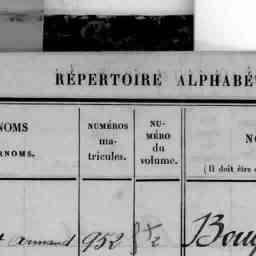 RÉPERTOIRE ALPHABÉ
NOMS
NUMÉROS
ma-
tricules.
NU-
MÉRO
du
volume.
NO
RNOMS.
(Il doit être
armand 952 2 Boug